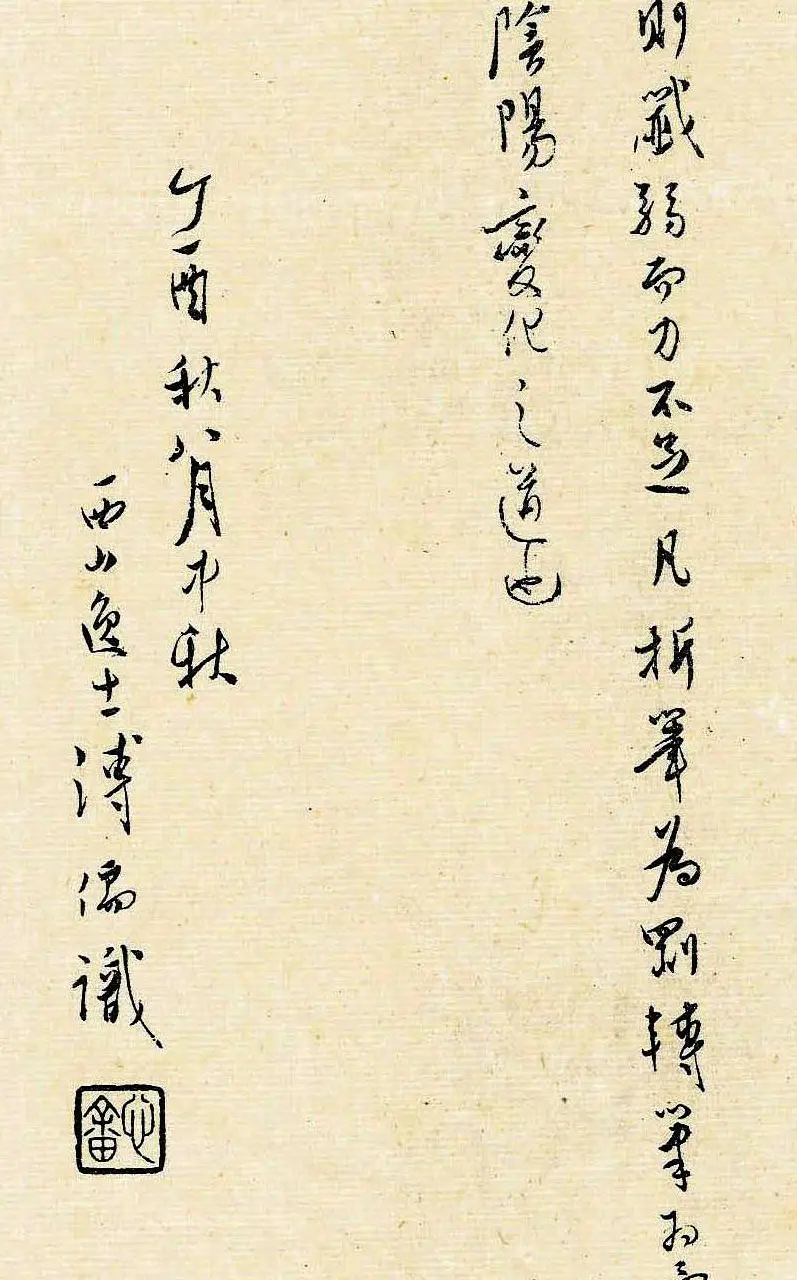 則纖弱而力不足凡折筆為剛轉筆為
陰陽變化之道也
丁酉秋八月中秋
西山逸士溥儒識
心畬